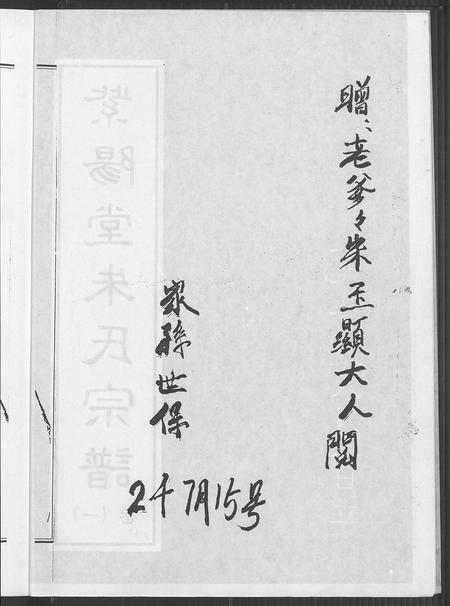 赠：老爹々朱丕顯大人閱
家孫世保
24 7月15号
紫陽堂朱氏宗譜
(一)